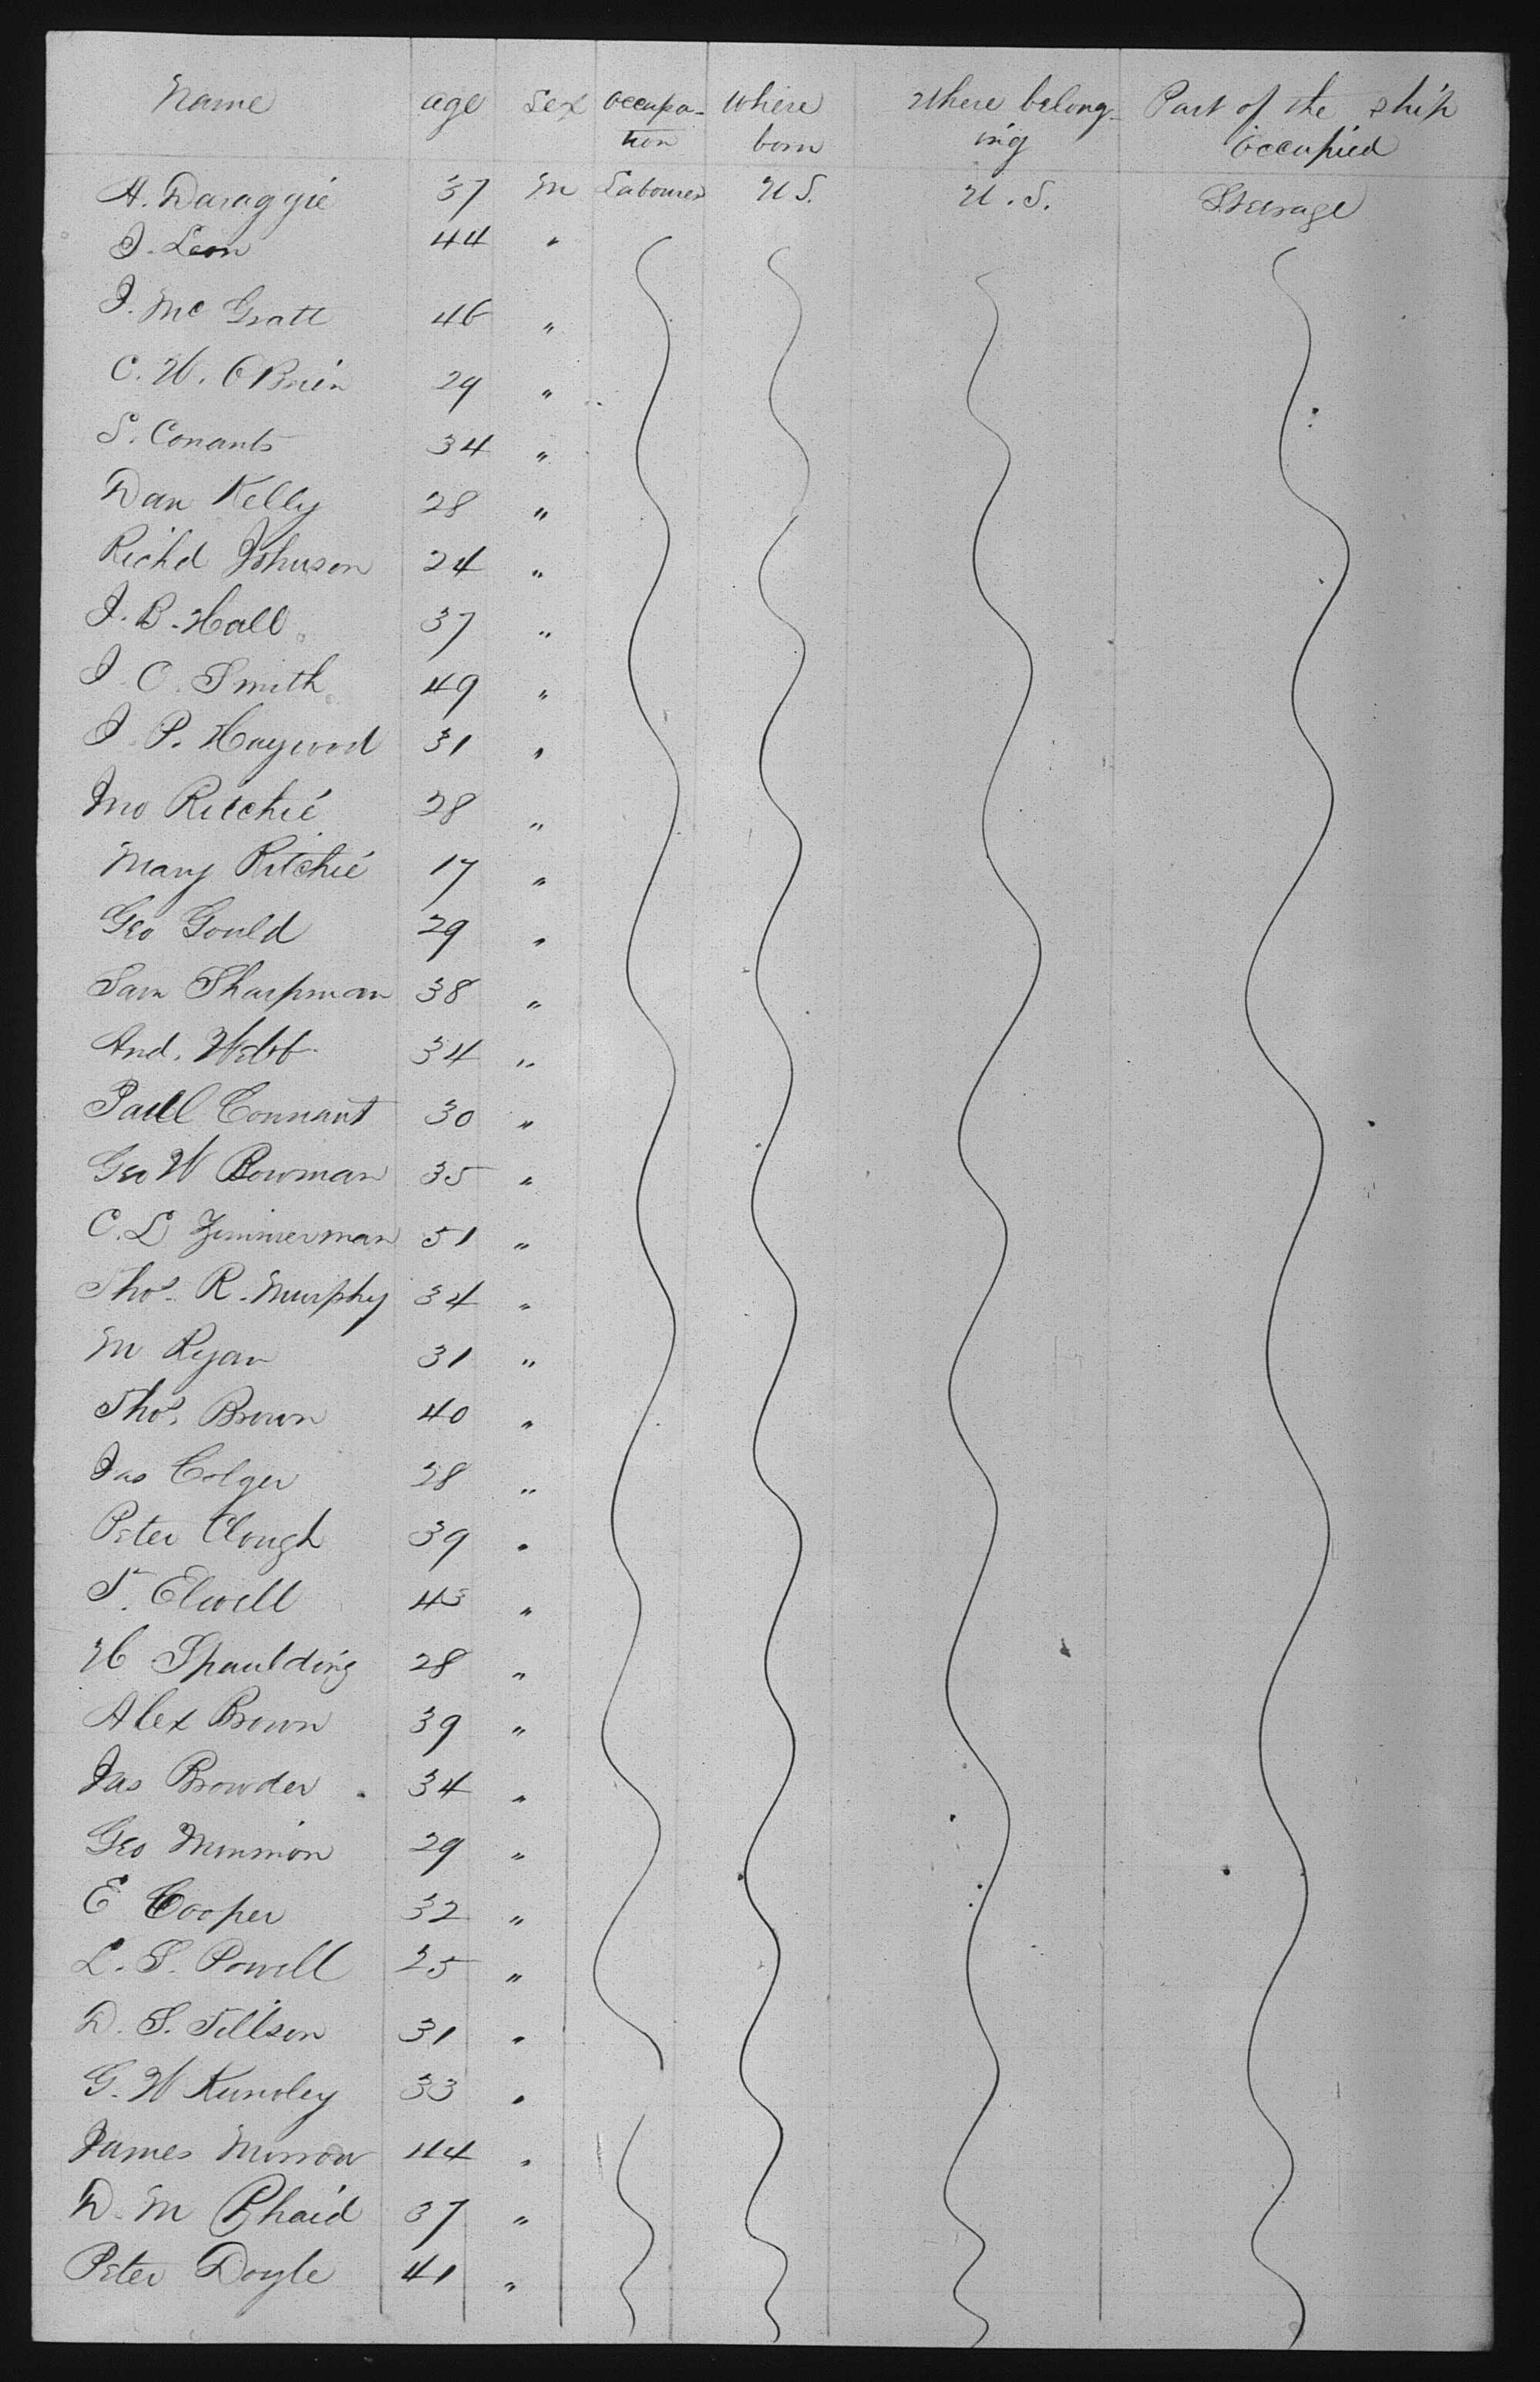 Name age Sex occupa- Where Where belong- Part of the ship
tion born ing occupied
A. Daraggie 37 M Labourer U S. U. S. Steerage
J. Leon 44 "
J. Mc Gratt 46 "
C. W. O Brien 29 "
S. Conants 34 "
Dan Kelly 28 "
Richd Johnson 24 "
J. B. Hall 37 "
J. C. Smith 49 "
J. P. Haywood 31 "
Jno Ritchie 28 "
Mary Ritchie 17 "
Geo Gould 29 "
Sam Sharpman 38 "
And. Webb 34 "
Paul Connant 30 "
Geo W Bowman 35 "
C. L Zimmerman 51 "
Thos. R. Murphy 34 "
M Ryan 31 "
Thos. Brown 40 "
Jas Colger 28 "
Peter Clough 39 "
T. Elwell 43 "
H Spaulding 28 "
Alex Brown 39 "
Jas Browder 34 "
Geo 29 "
E Cooper 32 "
L. S. Powell 25 "
D. S. Tillson 31 "
G. W 33 "
James Morrow 44 "
D. M Phaid 37 "
Peter Doyle 41 "